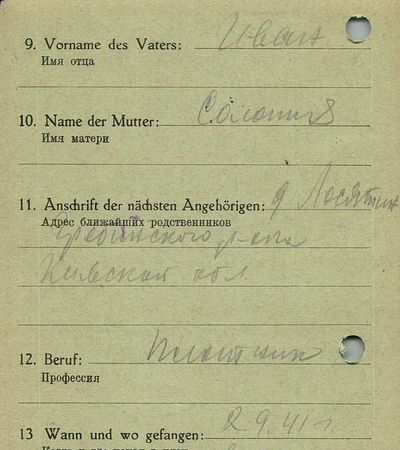 9. Vorname des Vaters: Иван
Имя отца
10. Name der Mutter: Саломия
Имя матери
11. Anschrift der nächsten Angehörigen: д Лосятин
Адрес ближайших родственников
Гребінского р-она
Киевская обл.
12. Beruf: Плотник
Профессия
13 Wann und wo gefangen: 2.9.41 г.